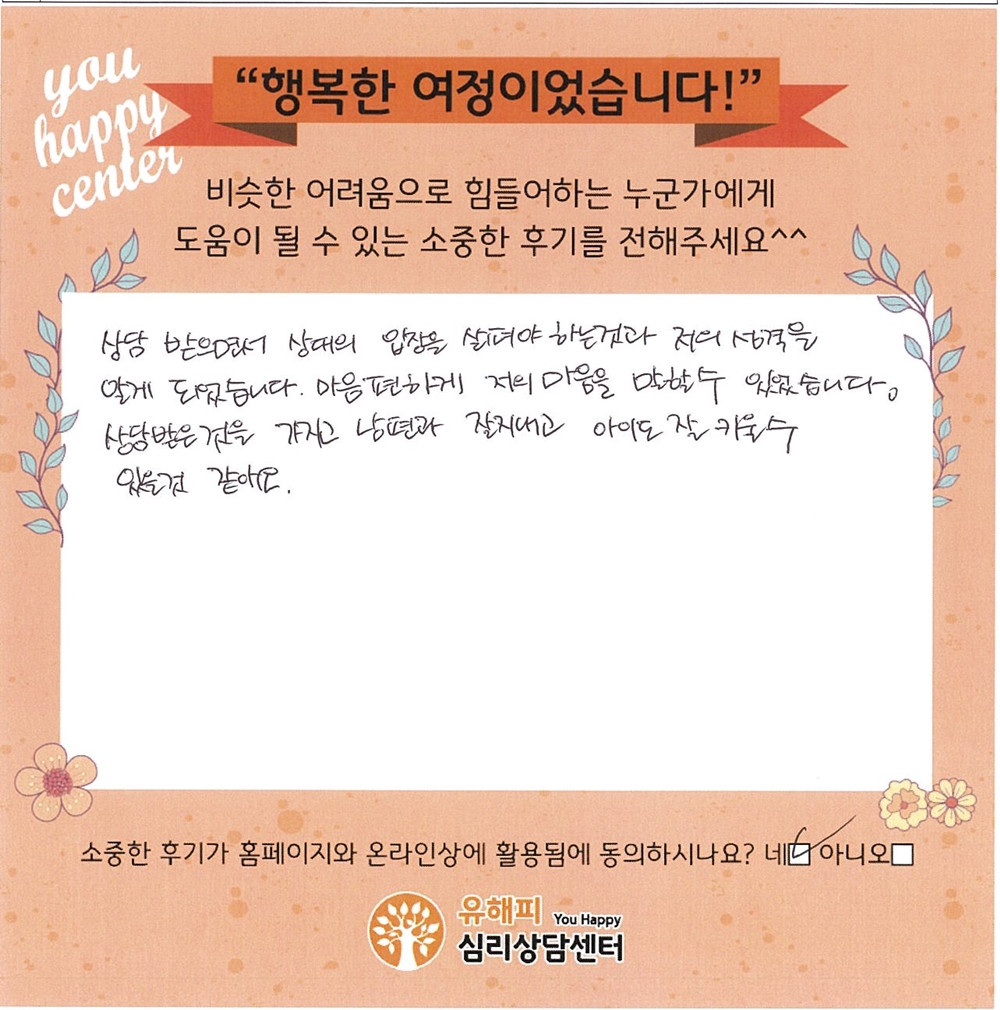 you
happy
center
“행복한 여정이었습니다!”
비슷한 어려움으로 힘들어하는 누군가에게
도움이 될 수 있는 소중한 후기를 전해주세요^^
상담 받으면서 상대의 입장을 살펴야 하는것과 저의 성격을
알게 되었습니다. 마음편하게 저의 마음을 말할수 있었습니다.
상담받은것을 가지고 남편과 잘지내고 아이도 잘 키울수
있을것 같아요.
소중한 후기가 홈페이지와 온라인상에 활용됨에 동의하시나요? 네☑ 아니오□
유해피 You Happy
심리상담센터